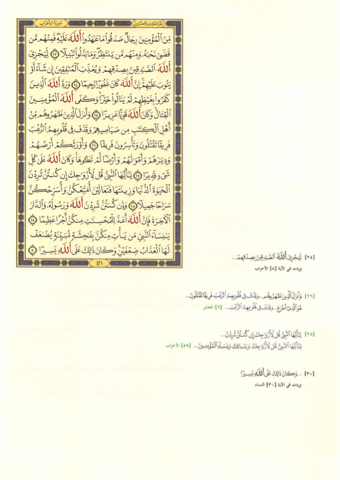 سُورَةُ الْأَحْزَابِ
مِّنَ الْمُؤْمِنِينَ رِجَالٌ صَدَقُوا مَا عَاهَدُوا اللَّهَ عَلَيْهِ فَمِنْهُم مَّن
قَضَىٰ نَحْبَهُ وَمِنْهُم مَّن يَنتَظِرُ وَمَا بَدَّلُوا تَبْدِيلًا ٢٣ لِّيَجْزِيَ
اللَّهُ الصَّادِقِينَ بِصِدْقِهِمْ وَيُعَذِّبَ الْمُنَافِقِينَ إِن شَاءَ أَوْ
يَتُوبَ عَلَيْهِمْ إِنَّ اللَّهَ كَانَ غَفُورًا رَّحِيمًا ٢٤ وَرَدَّ اللَّهُ الَّذِينَ
كَفَرُوا بِغَيْظِهِمْ لَمْ يَنَالُوا خَيْرًا وَكَفَى اللَّهُ الْمُؤْمِنِينَ
الْقِتَالَ وَكَانَ اللَّهُ قَوِيًّا عَزِيزًا ٢٥ وَأَنزَلَ الَّذِينَ ظَاهَرُوهُم مِّنْ
أَهْلِ الْكِتَابِ مِن صَيَاصِيهِمْ وَقَذَفَ فِي قُلُوبِهِمُ الرُّعْبَ
فَرِيقًا تَقْتُلُونَ وَتَأْسِرُونَ فَرِيقًا ٢٦ وَأَوْرَثَكُمْ أَرْضَهُمْ
وَدِيَارَهُمْ وَأَمْوَالَهُمْ وَأَرْضًا لَّمْ تَطَئُوهَا وَكَانَ اللَّهُ عَلَىٰ كُلِّ
شَيْءٍ قَدِيرًا ٢٧ يَا أَيُّهَا النَّبِيُّ قُل لِّأَزْوَاجِكَ إِن كُنتُنَّ تُرِدْنَ
الْحَيَاةَ الدُّنْيَا وَزِينَتَهَا فَتَعَالَيْنَ أُمَتِّعْكُنَّ وَأُسَرِّحْكُنَّ
سَرَاحًا جَمِيلًا ٢٨ وَإِن كُنتُنَّ تُرِدْنَ اللَّهَ وَرَسُولَهُ وَالدَّارَ
الْآخِرَةَ فَإِنَّ اللَّهَ أَعَدَّ لِلْمُحْسِنَاتِ مِنكُنَّ أَجْرًا عَظِيمًا ٢٩
يَا نِسَاءَ النَّبِيِّ مَن يَأْتِ مِنكُنَّ بِفَاحِشَةٍ مُّبَيِّنَةٍ يُضَاعَفْ
لَهَا الْعَذَابُ ضِعْفَيْنِ وَكَانَ ذَٰلِكَ عَلَى اللَّهِ يَسِيرًا ٣٠
٤٢١
[٢٤] لِّيَجْزِيَ اللَّهُ الصَّادِقِينَ بِصِدْقِهِمْ...
وردت في الآية [٨] الأحزاب
[٢٦] وَأَنزَلَ الَّذِينَ ظَاهَرُوهُم... وَقَذَفَ فِي قُلُوبِهِمُ الرُّعْبَ فَرِيقًا تَقْتُلُونَ...
هُوَ الَّذِي أَخْرَجَ... وَقَذَفَ فِي قُلُوبِهِمُ الرُّعْبَ... [٢] الحشر
[٢٨] يَا أَيُّهَا النَّبِيُّ قُل لِّأَزْوَاجِكَ إِن كُنتُنَّ تُرِدْنَ...
يَا أَيُّهَا النَّبِيُّ قُل لِّأَزْوَاجِكَ وَبَنَاتِكَ وَنِسَاءِ الْمُؤْمِنِينَ... [٥٩] الأحزاب
[٣٠] ...وَكَانَ ذَٰلِكَ عَلَى اللَّهِ يَسِيرًا
وردت في الآية [٣٠] النساء